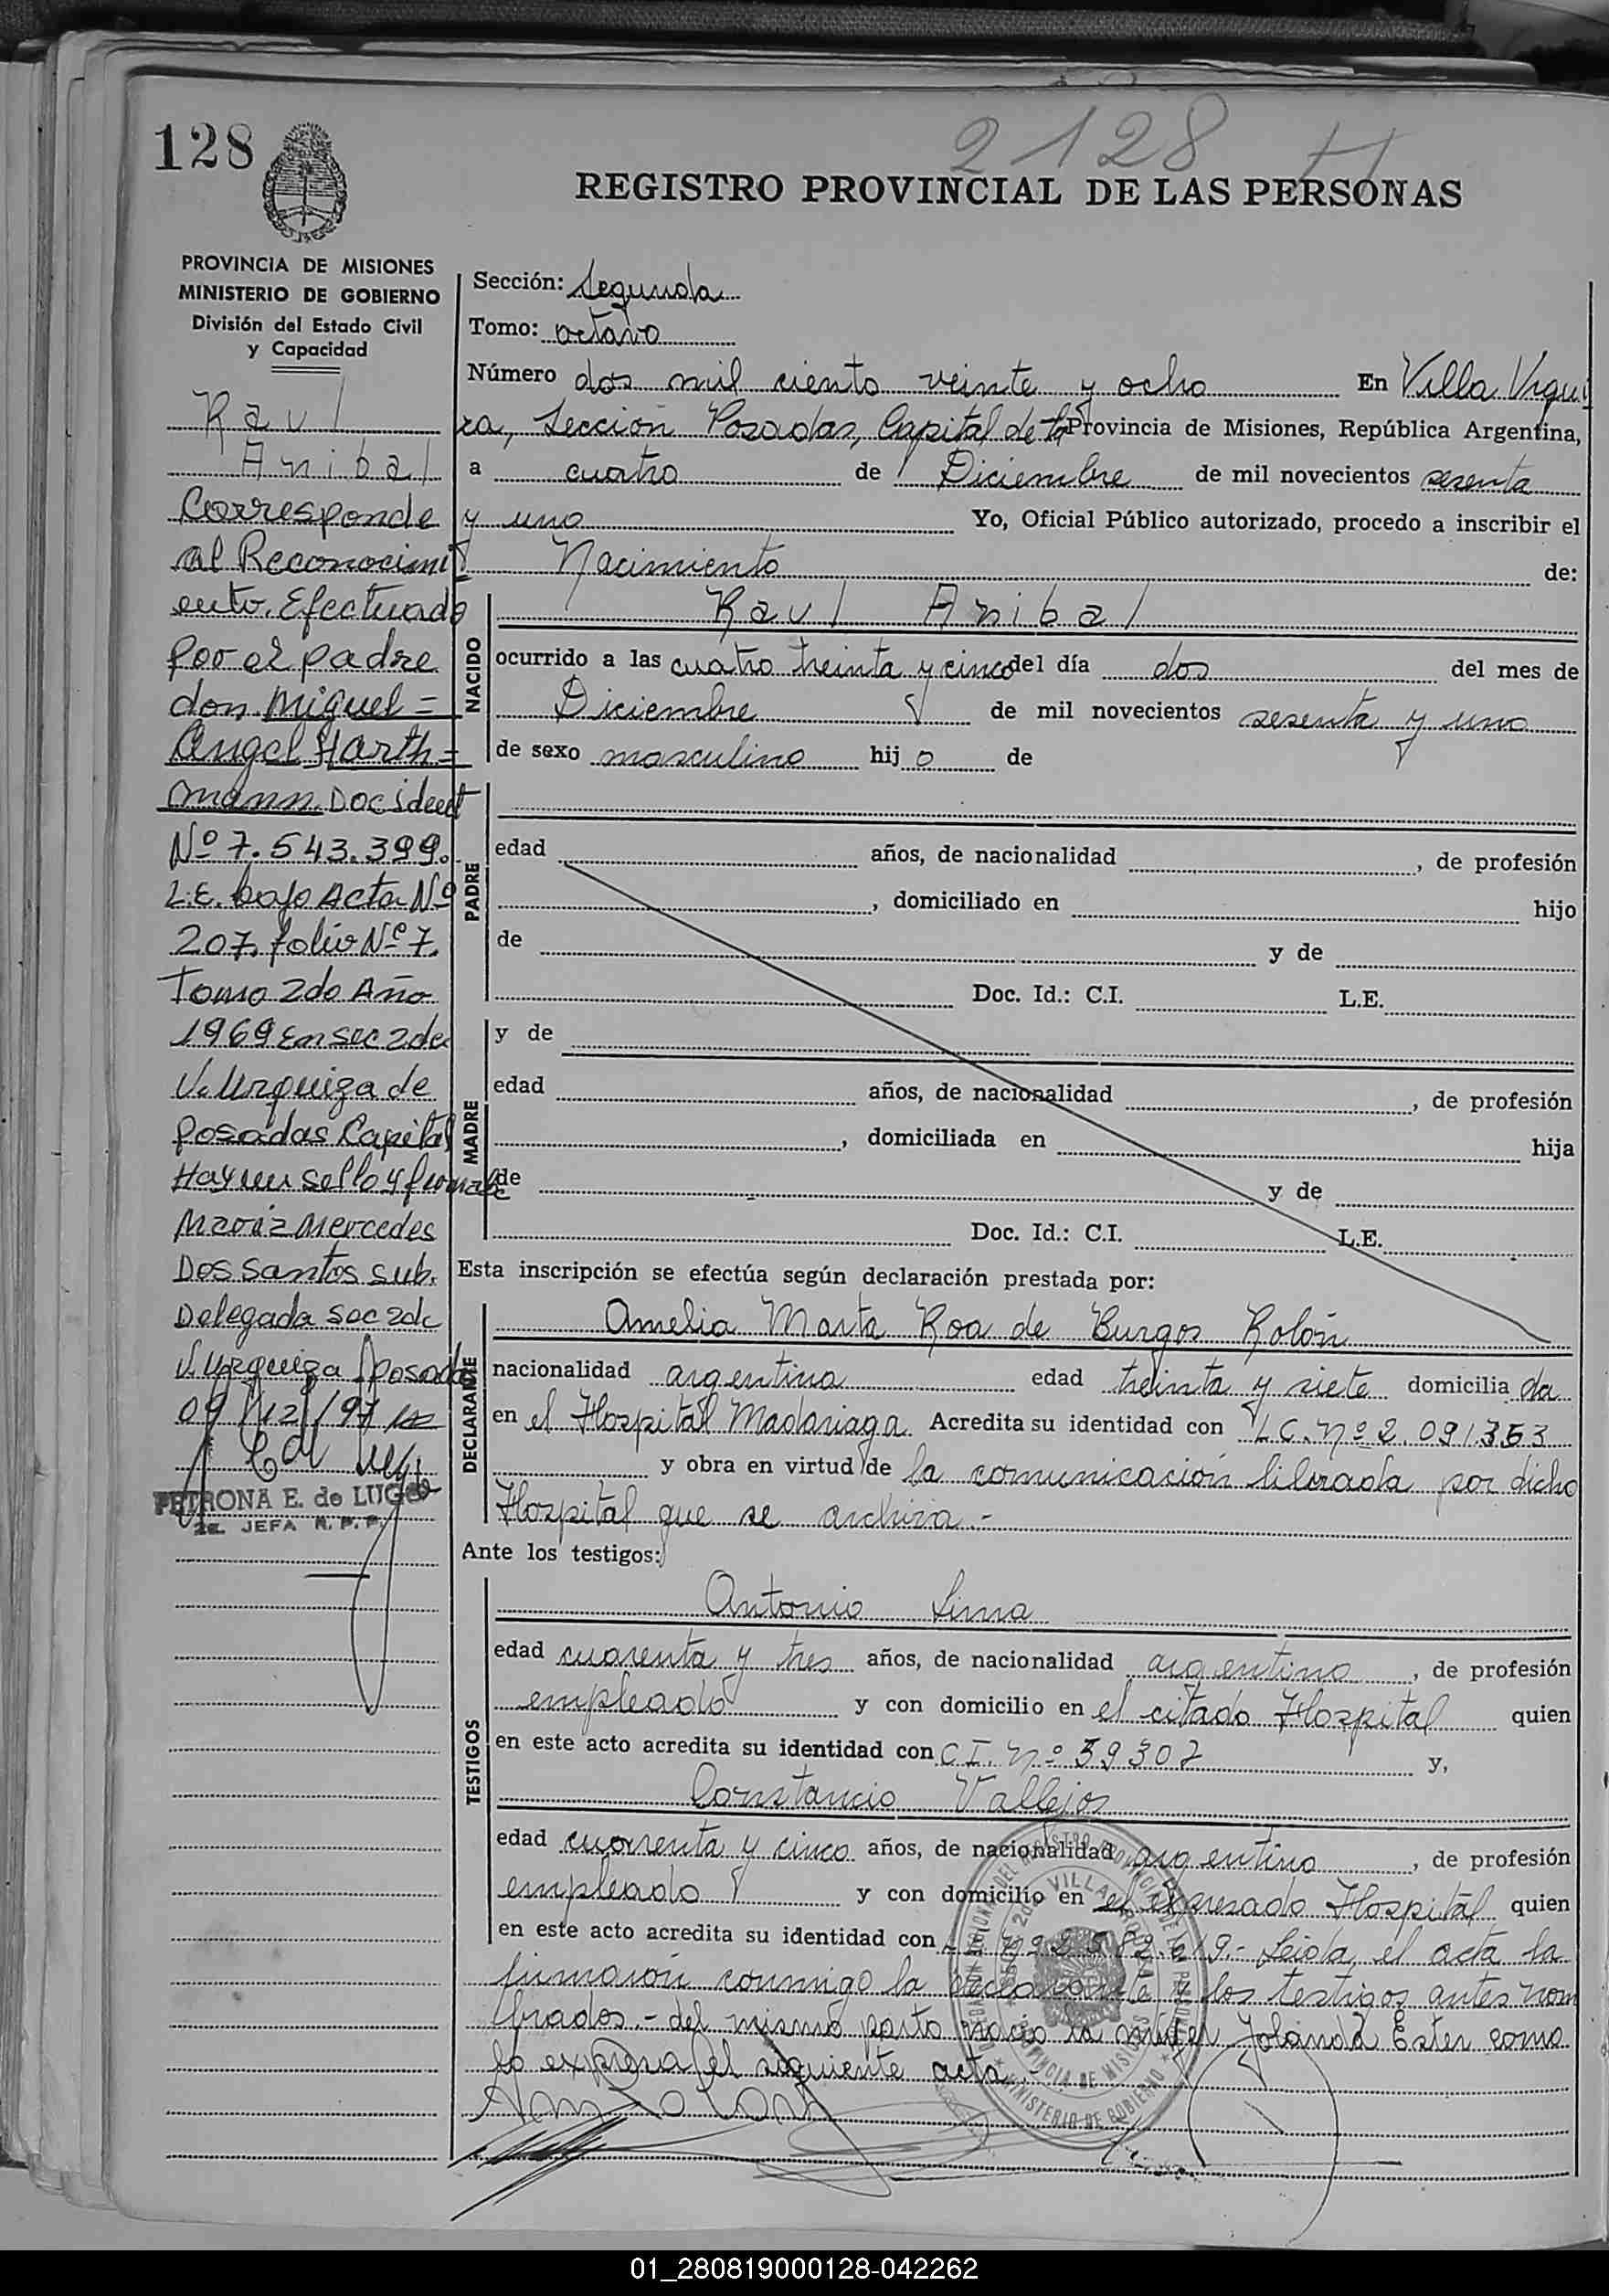 128
2128 H
REGISTRO PROVINCIAL DE LAS PERSONAS
PROVINCIA DE MISIONES
MINISTERIO DE GOBIERNO
División del Estado Civil
y Capacidad
Raul
Anibal
Corresponde
al Reconocimi
ento Efectuado
por el padre
don Miguel=
Angel Harth=
mann Doc ident
Nº 7.543.399.
L.E. bajo Acta Nº
207. folio Nº 7.
Tomo 2do Año
1969 en sec 2da
V. Urquiza de
Posadas Capital
Hay un sello y firma de
Maria Mercedes
Dos Santos sub.
Delegada sec 2da
V. Urquiza Posadas
09/12/97
PETRONA E. de LUGO
2a. JEFA R. P. P.
Sección: Segunda
Tomo: octavo
Número dos mil ciento veinte y ocho En Villa Urqui
za, Sección Posadas, Capital de la Provincia de Misiones, República Argentina,
a cuatro de Diciembre de mil novecientos sesenta
y uno Yo, Oficial Público autorizado, procedo a inscribir el
Nacimiento de:
NACIDO
Raul Anibal
ocurrido a las cuatro treinta y cinco del día dos del mes de
Diciembre de mil novecientos sesenta y uno
de sexo masculino hijo de
PADRE
edad años, de nacionalidad , de profesión
, domiciliado en hijo
de y de
Doc. Id.: C.I. L.E.
MADRE
y de
edad años, de nacionalidad , de profesión
, domiciliada en hija
de y de
Doc. Id.: C.I. L.E.
Esta inscripción se efectúa según declaración prestada por:
DECLARANTE
Amelia Marta Roa de Burgos Rolón
nacionalidad argentina edad treinta y siete domicilia da
en el Hospital Madariaga Acredita su identidad con L.C. nº 2.091353
y obra en virtud de la comunicación librada por dicho
Hospital que se archiva.-
Ante los testigos:
TESTIGOS
Antonio Lima
edad cuarenta y tres años, de nacionalidad argentino, de profesión
empleado y con domicilio en el citado Hospital quien
en este acto acredita su identidad con C.I. nº 59307 y,
Constancio Vallejos
edad cuarenta y cinco años, de nacionalidad argentino, de profesión
empleado y con domicilio en el expresado Hospital quien
en este acto acredita su identidad con Leida el acta la
firmaron conmigo la declarante y los testigos antes nom
brados.- del mismo parto nació la mujer Jolanda Ester como
lo expresa el siguiente acta.
01_280819000128-042262